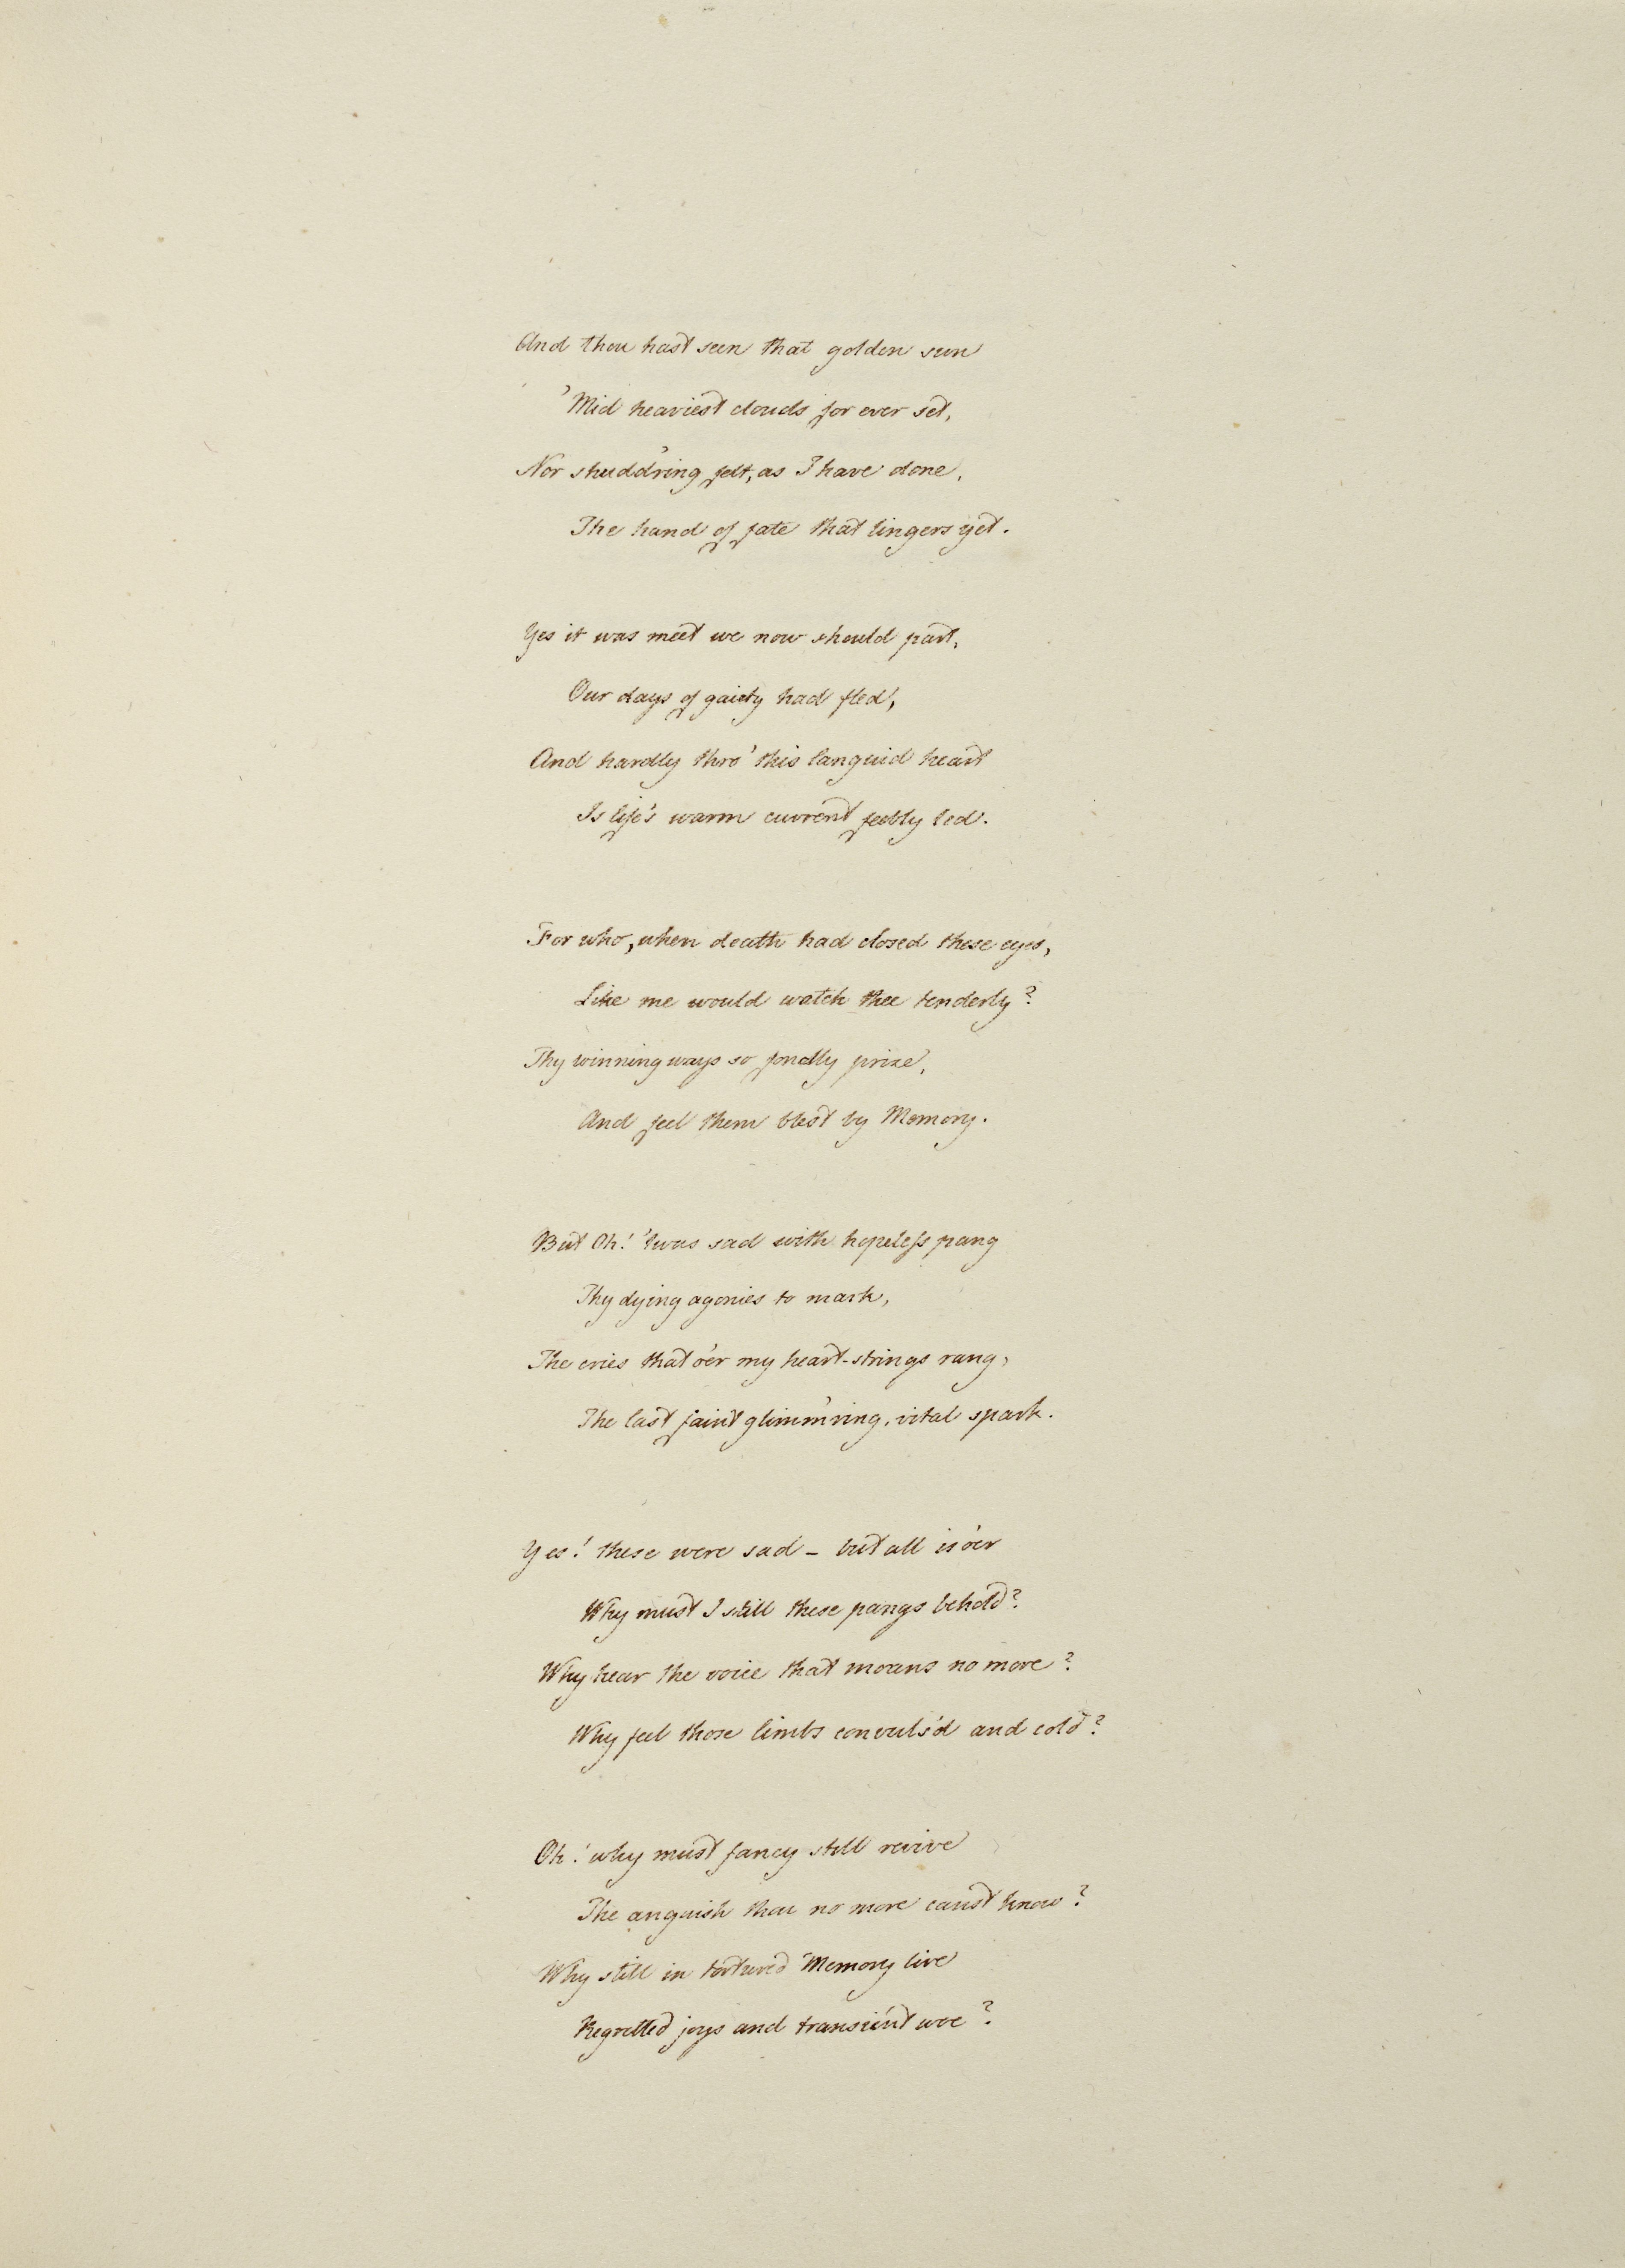 And thou hast seen that golden sun
'Mid heaviest clouds for ever set,
Nor shudd'ring felt, as I have done,
The hand of fate that lingers yet.
Yes it was meet we now should part,
Our days of gaiety had fled,
And hardly thro' this languid heart
Is life's warm current feebly led.
For who, when death had closed these eyes,
Like me would watch thee tenderly?
Thy winning ways so fondly prize,
And feel them blest by Memory.
But Oh! 'twas sad with hopeless pang
Thy dying agonies to mark,
The cries that o'er my heart-strings rang,
The last faint glimm'ring, vital spark.
Yes! these were sad - but all is o'er
Why must I still these pangs behold?
Why hear the voice that moans no more?
Why feel those limbs convuls'd and cold?
Oh! why must fancy still revive
The anguish thou no more canst know?
Why still in tortured Memory live
Regretted joys and transient woe?